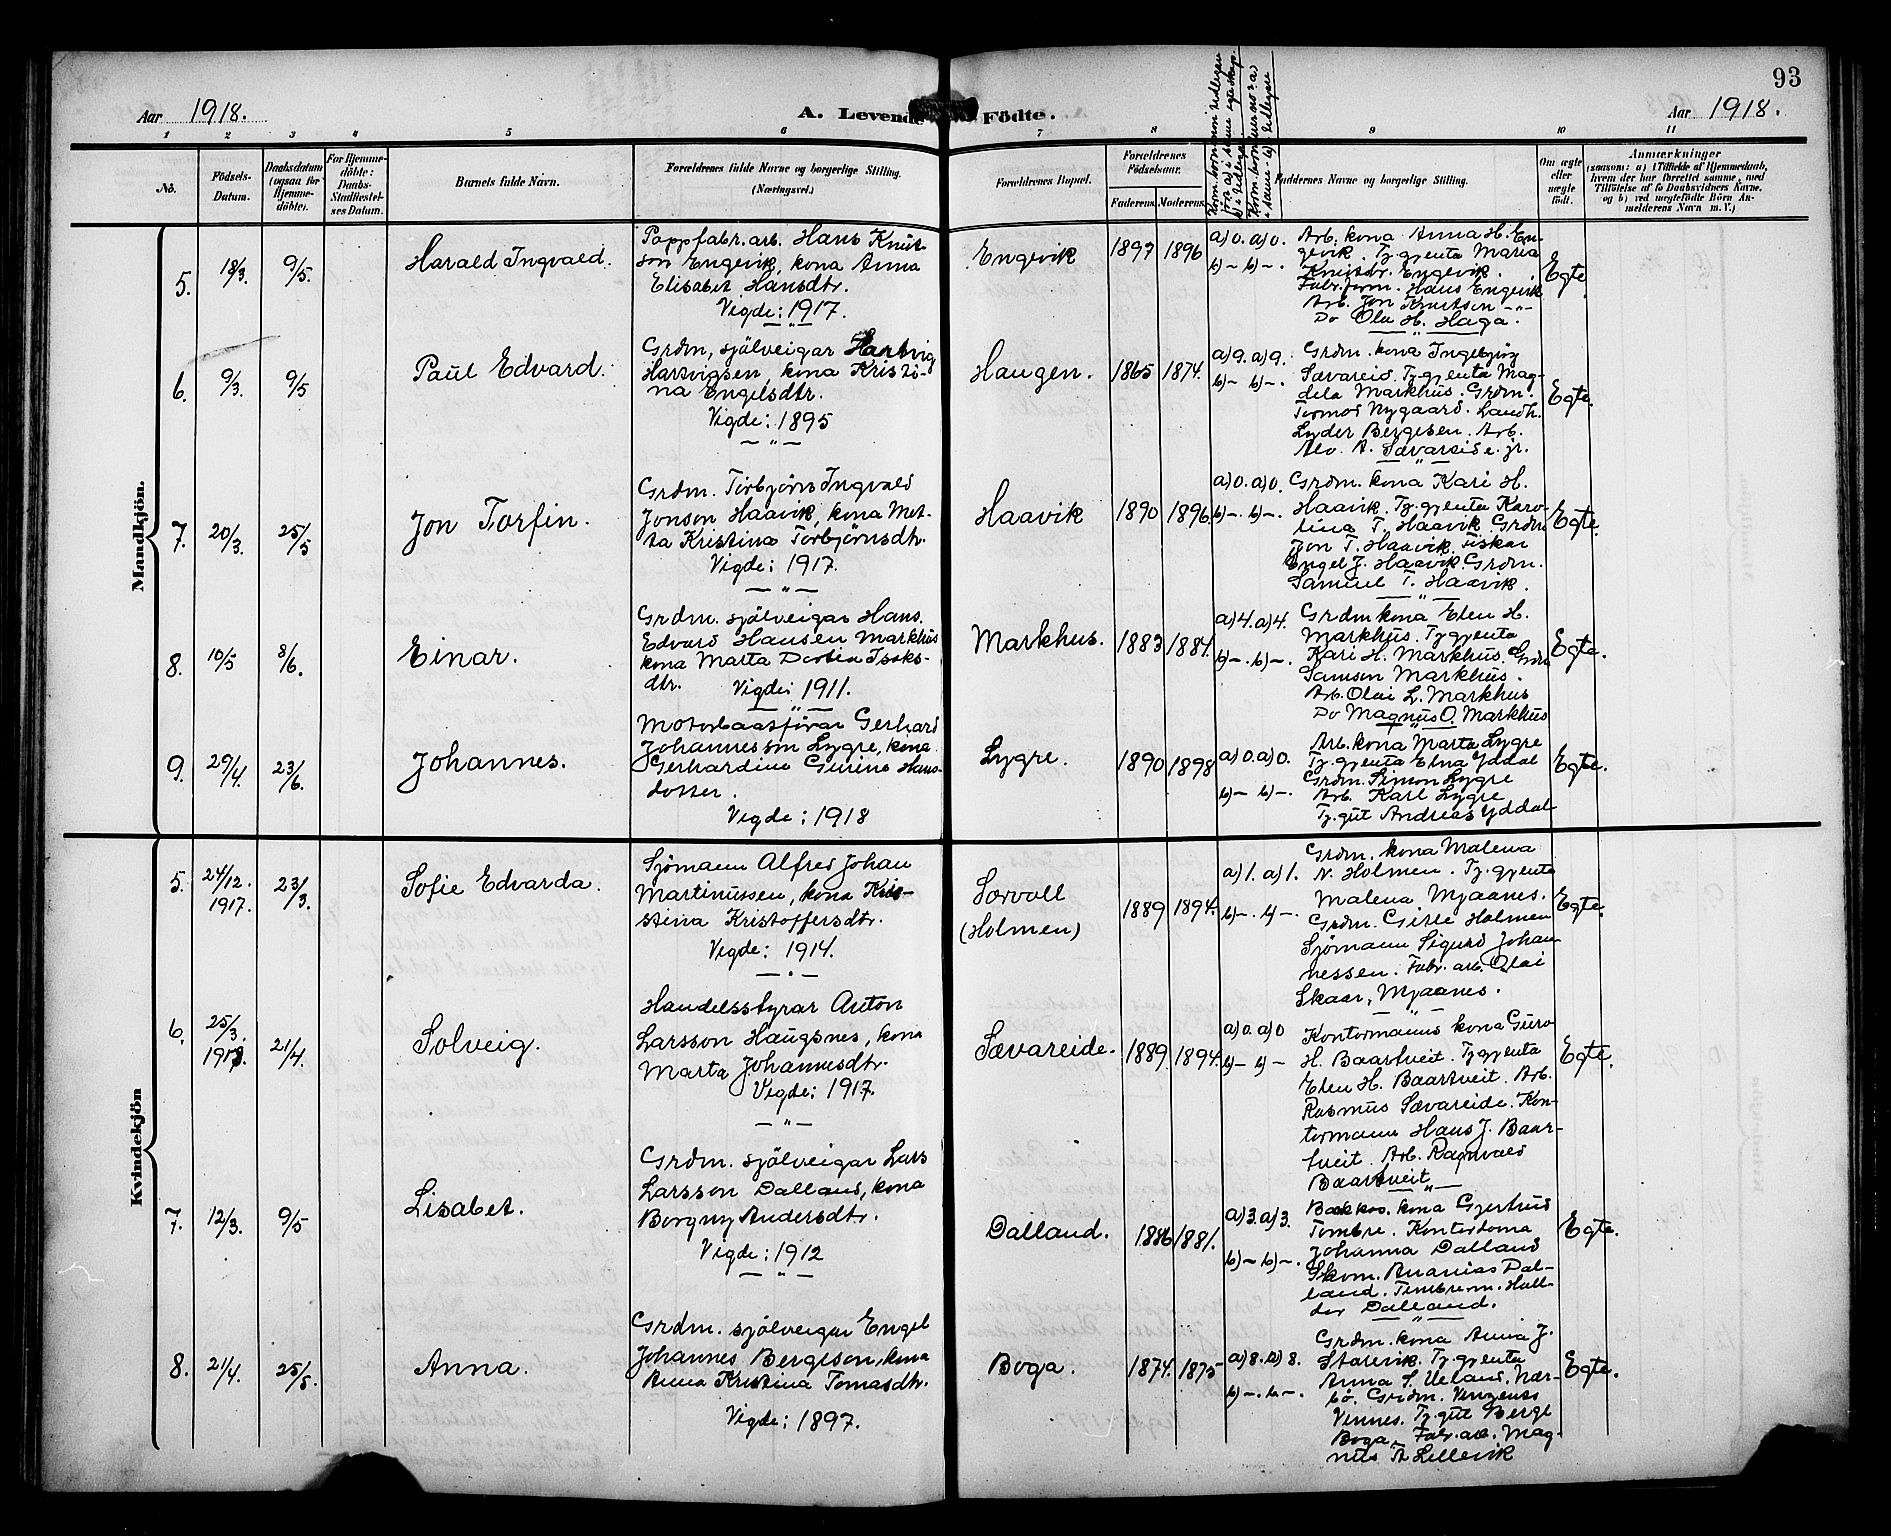 93
Aar 1918.
A. Levende Födte.
Aar 1918.
1 2 3 4 5 6 7 8 9 10 11
No.
Födsels-
Datum.
Daabsdatum
(ogsaa for
Hjemme-
døbte).
For Hjemme-
döbte:
Daabs-
Stadfæstel-
ses Datum.
Barnets fulde Navn.
Forældrenes fulde Navne og borgerlige Stilling.
(Næringsvei.)
Forældrenes Bopæl.
Forældrenes
Födselsaar.
Faderens. Moderens.
Faddernes Navne og borgerlige Stilling.
Om ægte
eller
uægte
födt.
Anmærkninger
(saasom: a) i Tilfælde af Hjemmedaab,
hvem der har forrettet samme, med
Tilföielse af to Daabsvidners Navne,
og b) ved uegtefödte Börn An-
melderens Navn m. V.)
Mandkjön.
5.
18/3.
9/5.
Harald Ingvald.
Pappfabr. arb. Hans Knut-
son Engevik, kona Anna
Elisabet Hansdtr.
Vigde: 1917.
Engevik
1897 1896
a) 0. a) 0.
b) – b) –.
Arb. kona Anna H. En-
gevik. Tj.gjenta Maria
Knutsdr. Engevik.
Fabr.form. Hans Engevik
Arb. Jon Knutson –"–
Do Ola H. Haga.
Egte.
6.
9/3.
9/5
Paul Edvard.
Grdm, själveigar Hartvig
Hartvigsen, kona Kristi-
na Engelsdtr.
Vigde: 1895
Haugen.
1865 1874.
a) 9. a) 9.
b) – b) –.
Grdm. kona Ingebjøg
Sævareid. Tj.gjenta Mag-
dela Markhus. Grdm.
Tormod Nygaard. Landh.
Lyder Bergesen. Arb.
Alv. A. Sævareide. jr.
Egte.
7.
20/3.
25/5
Jon Torfin.
Grdm. Torbjørn Ingvald
Jonson Haavik, kona Met-
ta Kristina Torbjørnsdtr.
Vigde: 1917.
Haavik
1890 1896.
a) 0. a) 0.
b) –. b) –.
Grdm. kona Kari H.
Haavik. Tj.gjenta Karo-
lina T. Haavik. Grdm
Jon T. Haavik. Fiskar
Engel J. Haavik. Grdm.
Samuel T. Haavik.
Egte.
8.
10/5
8/6.
Einar.
Grdm. själveigar Hans
Edvard Hansen Markhus
kona Marta Dortea Isaks-
dtr. Vigde: 1911.
Markhus.
1883 1884.
a) 4. a) 4.
b) –. b) –.
Grdm kona Elen H.
Markhus. Tj.gjenta
Kari H. Markhus. Grdm
Samson Markhus.
Arb. Olai L. Markhus
Do Magnus O. Markhus
Egte.
9.
29/4.
23/6.
Johannes.
Motorbaatförar Gerhard
Johannesson Lygre, kona
Gerhardine Gurine Hans-
dotter.
Vigde: 1918
Lygre.
1890 1898
a) 0. a) 0.
b) – b) –.
Arb. kona Marta Lygre
Tj.gjenta Elna Yddal
Grdm. Simon Lygre
Arb. Karl Lygre
Tj.gut Andreas Yddal
Egte.
Kvindekjön
5.
24/12.
1917.
23/3.
Sofie Edvarda.
Sjømann Alfred Johan
Martinussen, kona Kris-
stina Kristoffersdtr.
Vigde: 1914.
Sorvoll
(Holmen)
1889 1894.
a) 1. a) 1.
b) –. b) –.
Grdm. kona Malena
N. Holmen. Tj.gjenta
Malena Mjaanes.
Grdm. Gisle Holmen
Sjømann Sigurd Johan
nessen. Fabr. arb. Olai
Skaar, Mjaanes.
Egte.
6.
25/3.
1918.
21/4.
Solveig.
Handelsstyrar Anton
Larsson Haugsnes, kona
Marta Johannesdtr.
Vigde: 1917.
Sævareide.
1889. 1894.
a) 0. a) 0
b) – b) –
Kontormanns kona Guro
H. Baartveit. Tj.gjenta
Elen H. Baartveit. Arb.
Rasmus Sævareide. Kon-
tormann Hans J. Baar-
tveit. Arb. Ragnvald
Baartveit
Egte.
7.
12/3.
9/5
Lisabet.
Grdm. själveigar Lars
Larsson Dalland, kona
Borgny Andersdtr.
Vigde: 1912
Dalland.
1886 1881.
a) 3. a) 3.
b) – b) –.
kona Gjertrud
Tombre. Kontordama
Johanna Dalland
Skom. Ananias Dal-
land. Tømberm. Hall-
dor Dalland.
Egte.
8.
21/4.
25/8.
Anna.
Grdm. själveigar Engel
Johannes Bergeson, kona
Anna Kristina Tomasdtr.
Vigde: 1897.
Boga.
1874. 1875
a) 8. a) 8.
b) –. b) –.
Grdm. kona Anna J.
Starevik. Tj.gjenta
Anna S. Ueland, Nær-
bø. Grdm.
Vinnes. Tj.gut Berge
Boga. Fabr.arb. Mag-
nus A Lellevik
Egte.